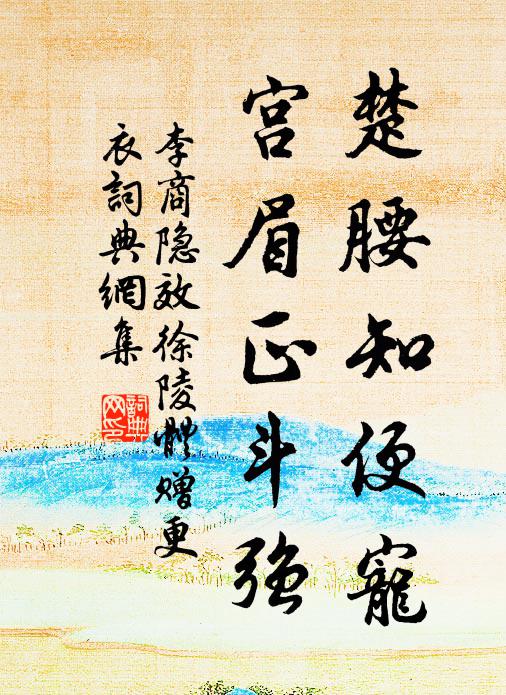 楚腰知便寵
宮眉正斗強
李商隐效徐陵體贈更
衣詞典網集
詞典
网印